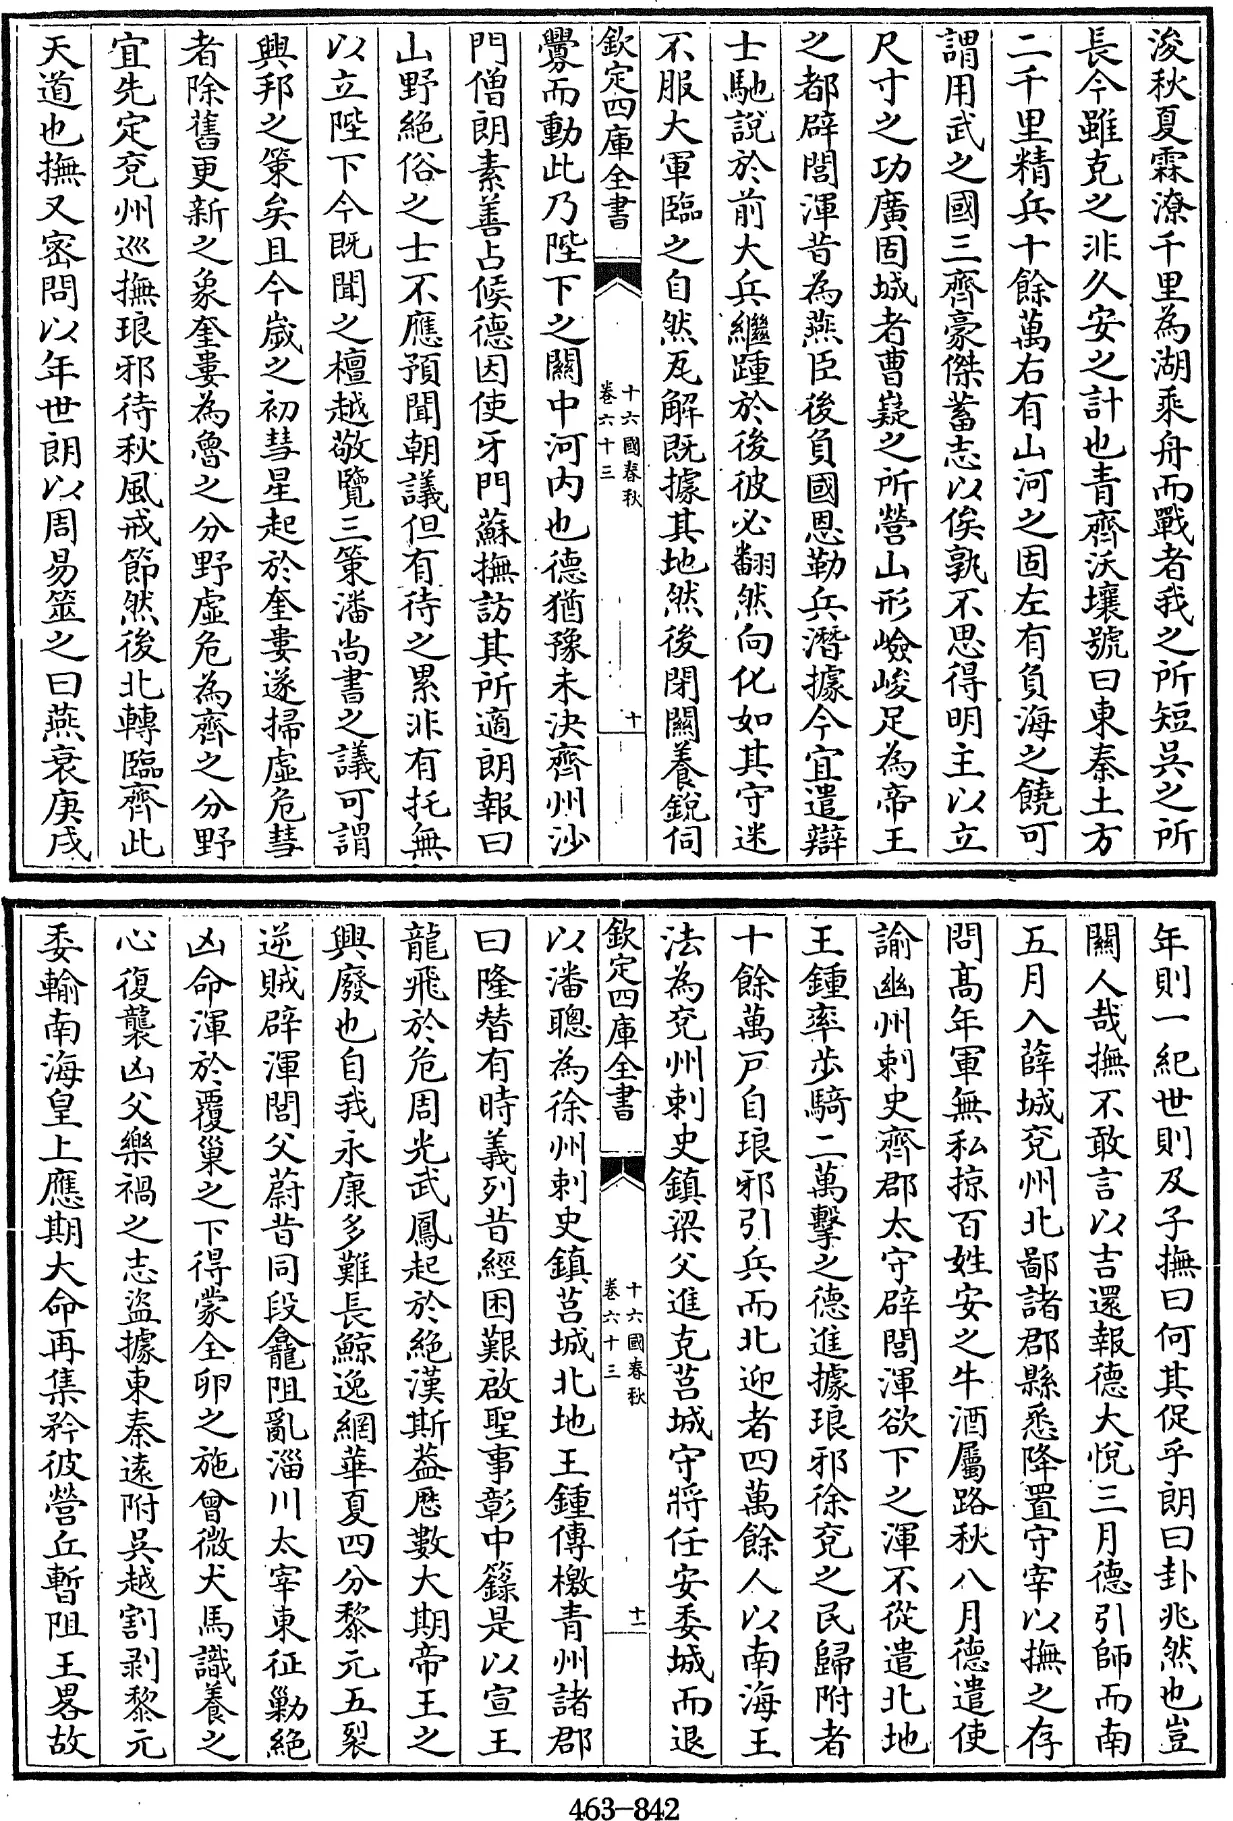 浚秋夏霖潦千里為湖乘舟而戰者我之所短吳之所
長今雖克之非久安之計也青齊沃壤號曰東秦土方
二千里精兵十餘萬右有山河之固左有負海之饒可
謂用武之國三齊豪傑蓄志以俟孰不思得明主以立
尺寸之功廣固城者曹嶷之所營山形嶮峻足為帝王
之都辟閭渾昔為燕臣後負國恩勒兵潛據今宜遣辯
士馳說於前大兵繼踵於後彼必翻然向化如其守迷
不服大軍臨之自然瓦解既據其地然後閉關養銳伺
欽定四庫全書
十六國春秋
卷六十三
十
釁而動此乃陛下之關中河内也德猶豫未決齊州沙
門僧朗素善占候德因使牙門蘇撫訪其所適朗報曰
山野絶俗之士不應預聞朝議但有待之累非有托無
以立陛下今既聞之檀越敬覽三策潘尚書之議可謂
興邦之策矣且今歲之初彗星起於奎婁遂掃虛危彗
者除舊更新之象奎婁為魯之分野虛危為齊之分野
宜先定兖州巡撫琅邪待秋風戒節然後北轉臨齊此
天道也撫又密問以年世朗以周易筮之曰燕衰庚戌
年則一紀世則及子撫曰何其促乎朗曰卦兆然也豈
關人哉撫不敢言以吉還報德大悅三月德引師而南
五月入薛城兖州北鄙諸郡縣悉降置守宰以撫之存
問高年軍無私掠百姓安之牛酒屬路秋八月德遣使
諭幽州刺史齊郡太守辟閭渾欲下之渾不從遣北地
王鍾率步騎二萬擊之德進據琅邪徐兖之民歸附者
十餘萬戶自琅邪引兵而北迎者四萬餘人以南海王
法為兖州刺史鎮梁父進克莒城守將任安委城而退
欽定四庫全書
十六國春秋
卷六十三
十一
以潘聰為徐州刺史鎮莒城北地王鍾傳檄青州諸郡
曰隆替有時義列昔經困艱啟聖事彰中籙是以宣王
龍飛於危周光武鳳起於絶漢斯葢厯數大期帝王之
興廢也自我永康多難長鯨逸網華夏四分黎元五裂
逆賊辟渾閭父蔚昔同段龕阻亂淄川太宰東征勦絶
凶命渾於覆巢之下得蒙全卵之施曾微犬馬識養之
心復襲凶父樂禍之志盜據東秦遠附吳越割剥黎元
委輸南海皇上應期大命再集矜彼營丘暫阻王畧故
463-842